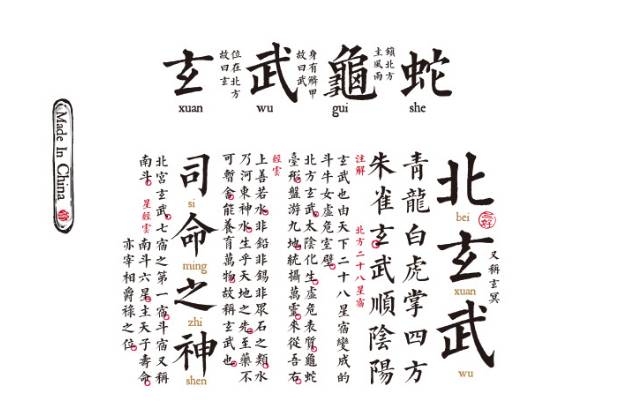 玄
位在北方
故曰玄
xuan
武
身有鱗甲
故曰武
wu
龜
鎮北方
主風雨
gui
蛇
she
Made In China
又稱玄冥
北玄武
bei
xuan
wu
青龍白虎掌四方
朱雀玄武順陰陽
註解 北方二十八星宿
玄武也由天下二十八星宿變成的
斗牛女虛危室壁
北方玄武太陰化生虛危表質龜蛇
臺形盤游九地統攝萬靈來從吾右
經雲
上善若水非鉛非錫非眾石之類水
乃河東神水生乎天地之先至藥不
可暫舍能養育萬物故稱玄武也
司命之神
si
ming
zhi
shen
北宮玄武七宿之第一宿斗宿又稱
南斗 星經雲 南斗六星主天子壽命
亦宰相爵祿之位